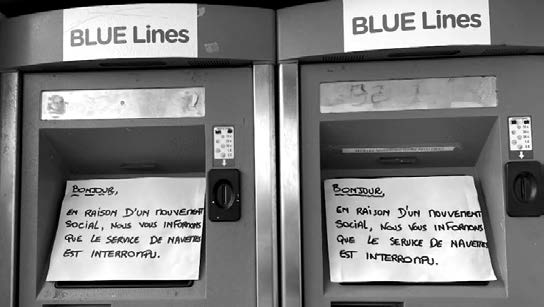 BLUE Lines
BONJOUR,
EN RAISON D'UN MOUVEMENT
SOCIAL, NOUS VOUS INFORMONS
QUE LE SERVICE DE NAVETTES
EST INTERROMPU.
BLUE Lines
BONJOUR,
EN RAISON D'UN MOUVEMENT
SOCIAL, NOUS VOUS INFORMONS
QUE LE SERVICE DE NAVETTES
EST INTERROMPU.